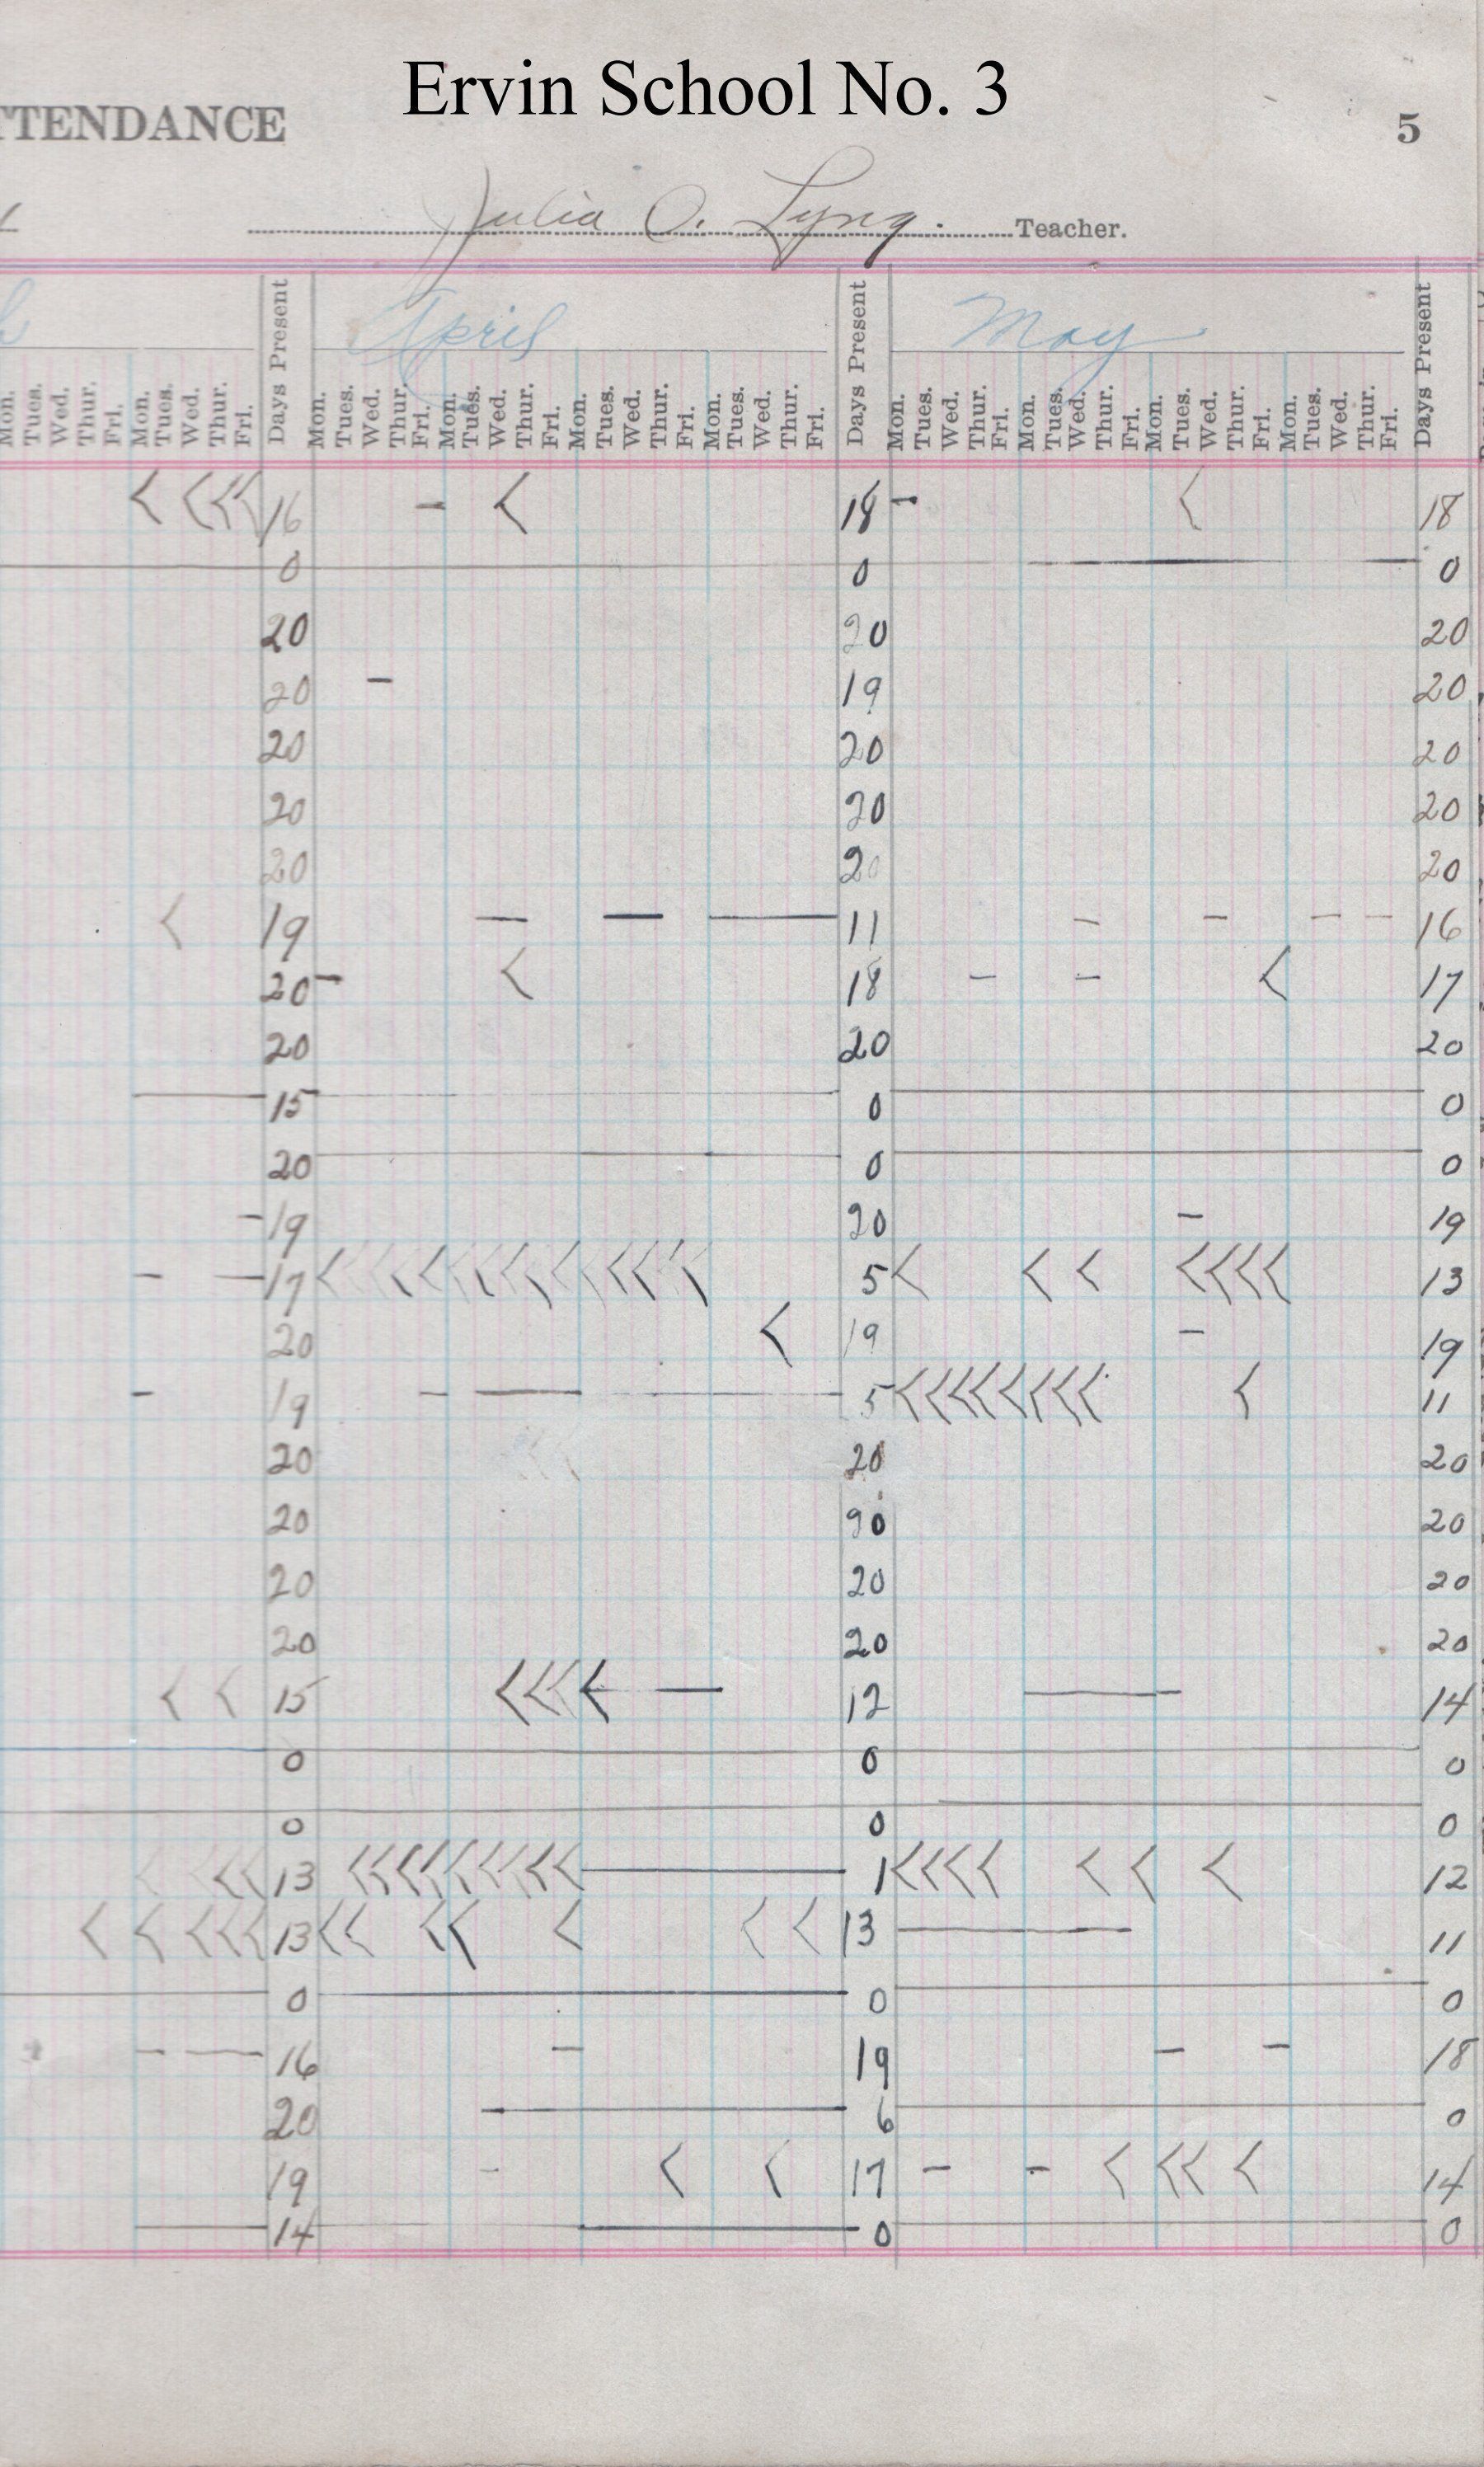 Ervin School No. 3
TTENDANCE
5
Julia O. Lyng. Teacher.
Days Present April Days Present May Days Present
Mon. Tues. Wed. Thur. Fri. Mon. Tues. Wed. Thur. Fri. Mon. Tues. Wed. Thur. Fri. Mon. Tues. Wed. Thur. Fri. Mon. Tues. Wed. Thur. Fri. Mon. Tues. Wed. Thur. Fri. Mon. Tues. Wed. Thur. Fri. Mon. Tues. Wed. Thur. Fri. Mon. Tues. Wed. Thur. Fri. Mon. Tues. Wed. Thur. Fri.
16 18 18
0 0 0
20 20 20
20 19 20
20 20 20
20 20 20
20 20 20
19 11 16
20 18 17
20 20 20
15 0 0
20 0 0
19 20 19
17 5 13
20 19 19
19 5 11
20 20 20
20 20 20
20 20 20
20 20 20
15 12 14
0 0 0
0 0 0
13 1 12
13 13 11
0 0 0
16 19 18
20 6 0
19 17 14
14 0 0